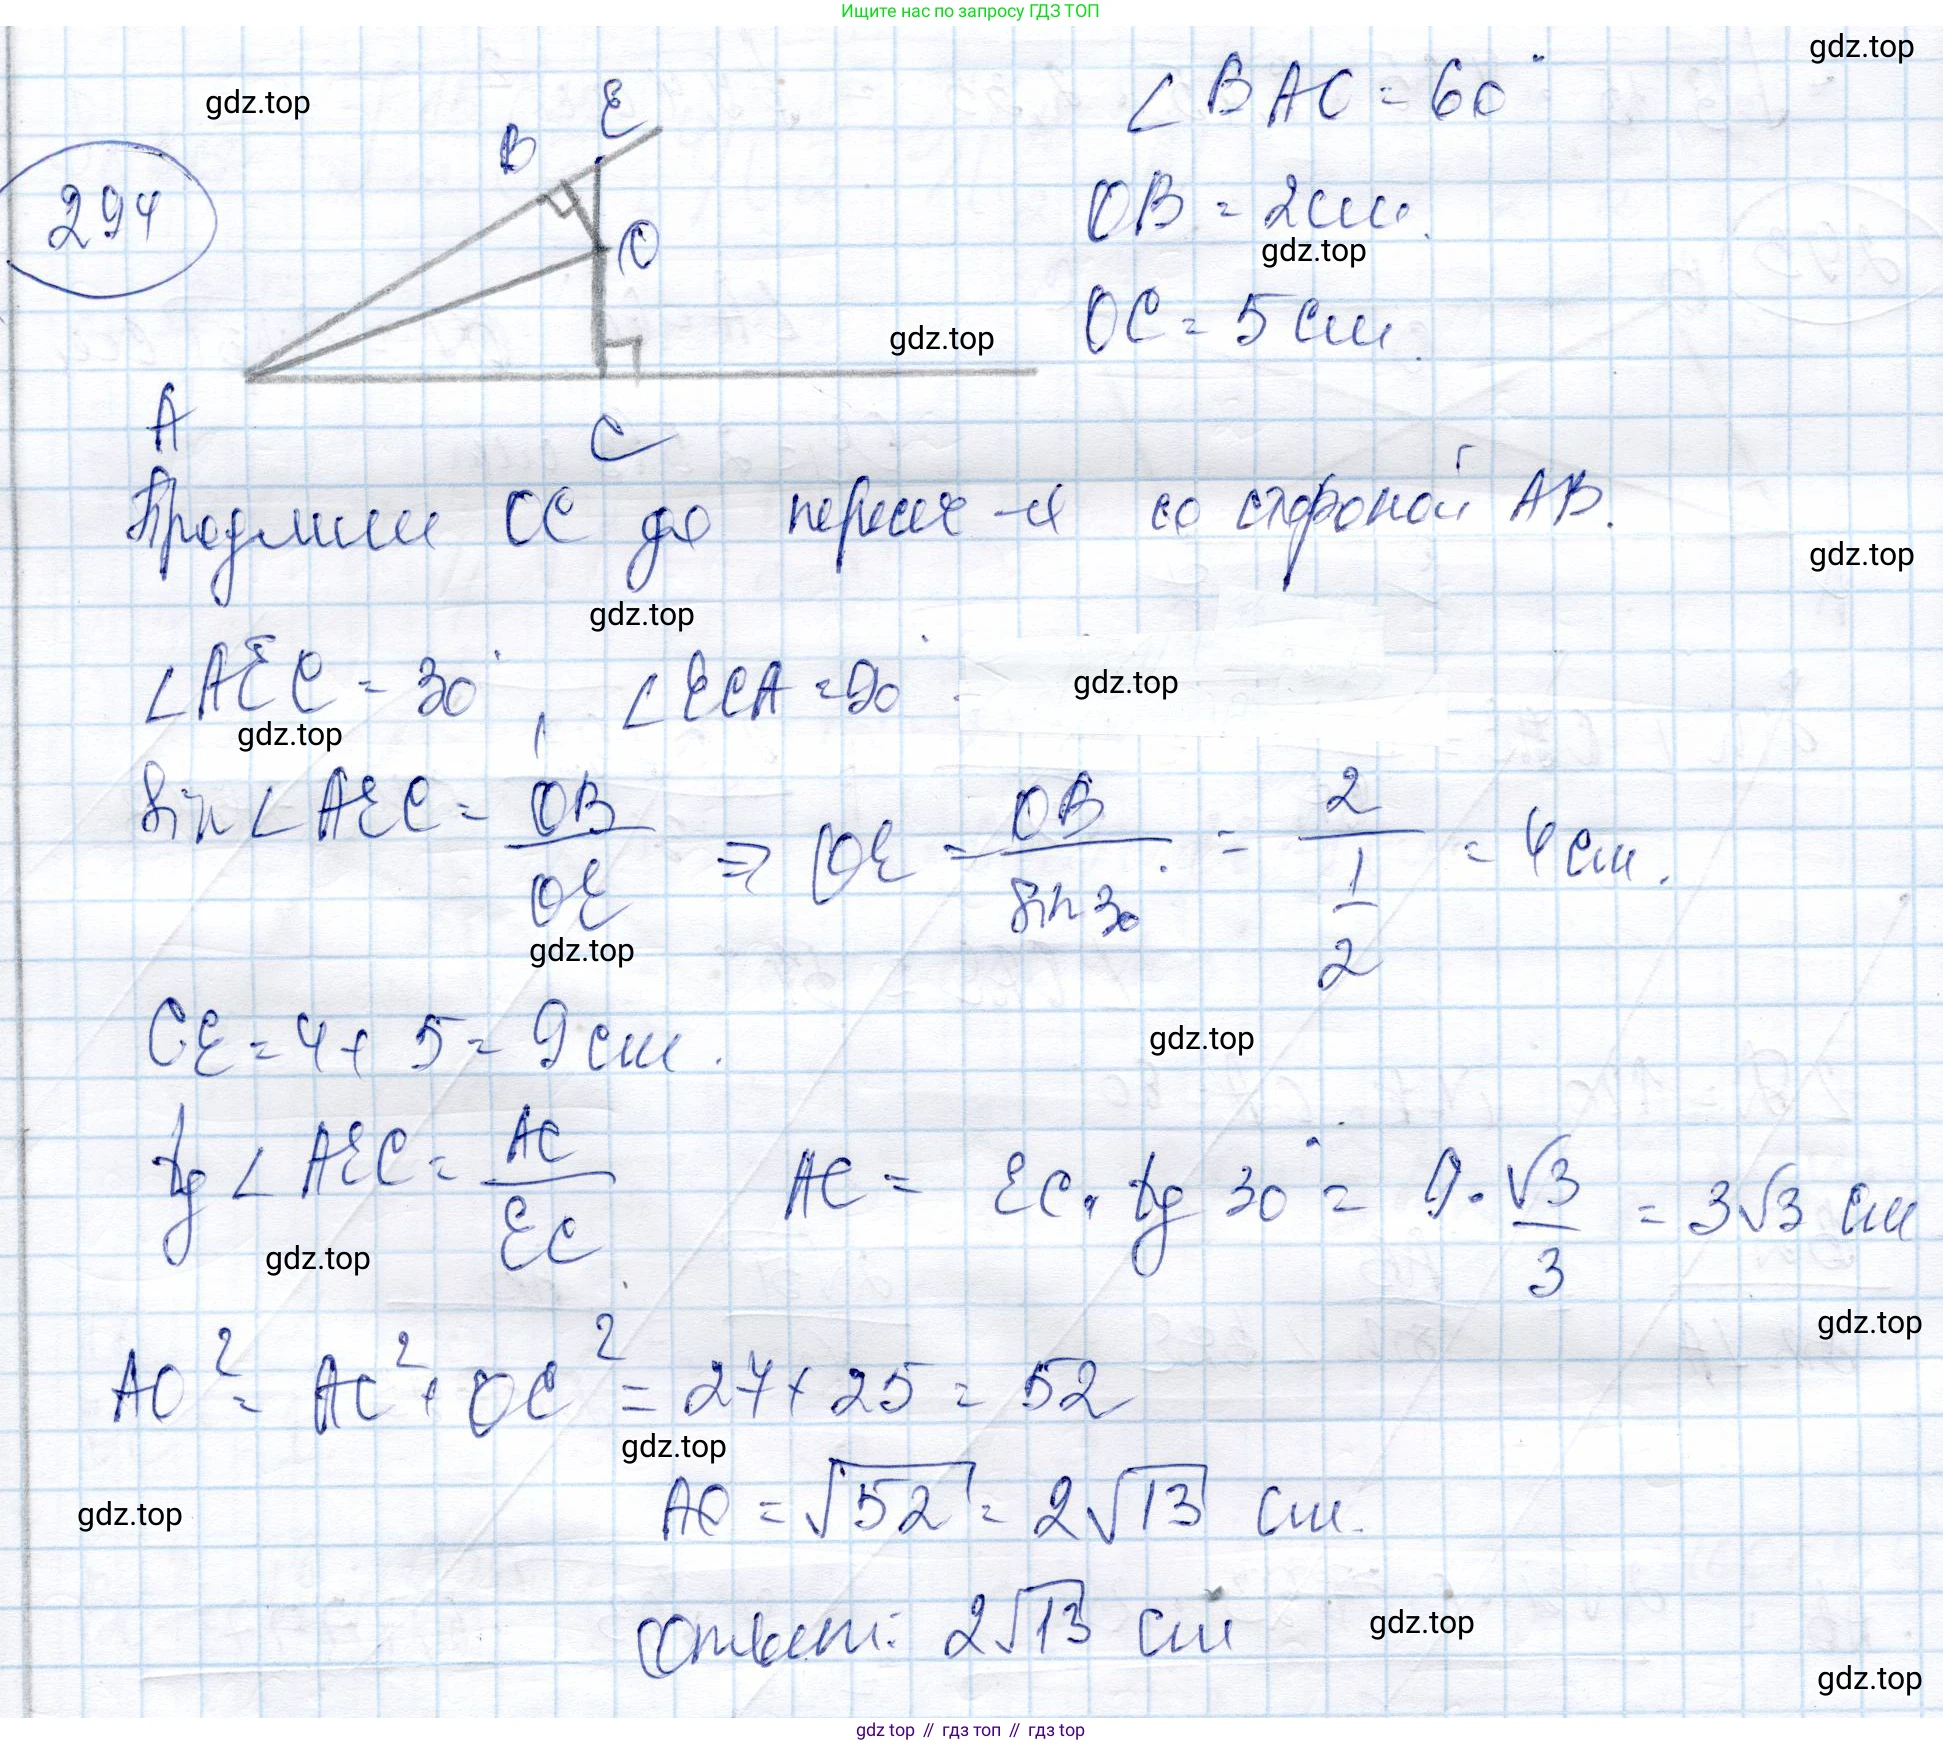 Ищите нас по запросу ГДЗ ТОП
gdz.top
gdz.top
294
B E
O
A
C
∠ BAC = 60°
OB = 2 см.
gdz.top
OC = 5 см.
gdz.top
Продлим OC до пересеч-я со стороной AB.
gdz.top
gdz.top
∠AEC = 30°, ∠ECA = 90°.
gdz.top
gdz.top
Sin∠AEC = OB/OE ⇒ OE = OB/Sin 30° = 2/(1/2) = 4 см.
gdz.top
CE = 4 + 5 = 9 см.
gdz.top
tg∠AEC = AC/EC AC = EC · tg 30° = 9 · √3/3 = 3√3 см
gdz.top
gdz.top
AO² = AC² + OC² = 27 + 25 = 52
gdz.top
AO = √52 = 2√13 см.
gdz.top
Ответ: 2√13 см
gdz.top
gdz.top
gdz top // гдз топ // гдз top